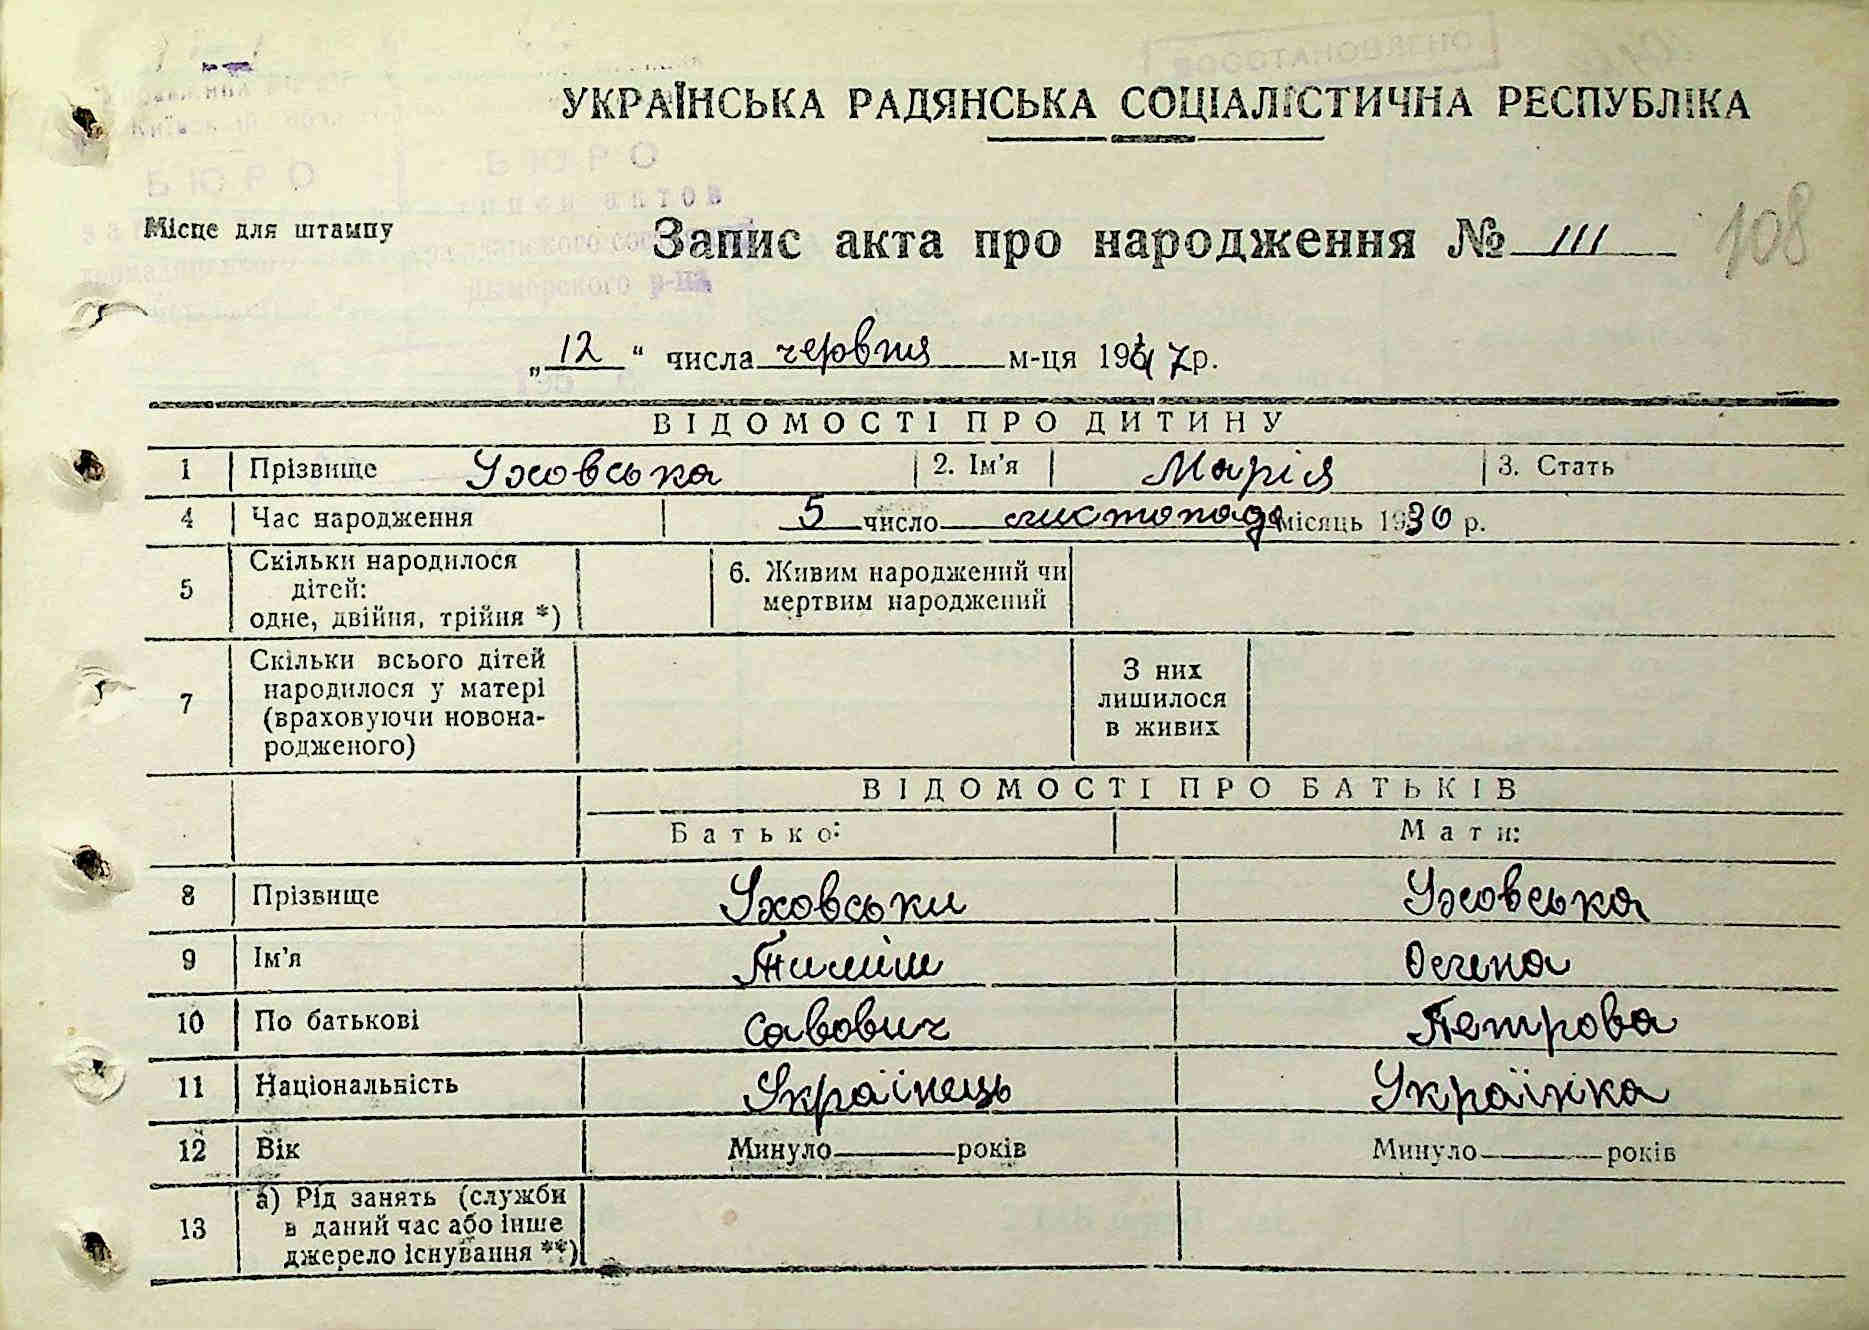 ВОССТАНОВЛЕНО
УКРАЇНСЬКА РАДЯНСЬКА СОЦІАЛІСТИЧНА РЕСПУБЛІКА
БЮРО БЮРО
Місце для штампу
Запис акта про народження № 111 108
„12“ числа червня м-ця 1947 р.
ВІДОМОСТІ ПРО ДИТИНУ
1 Прізвище Ужовська 2. Ім'я Марія 3. Стать
4 Час народження 5 число листопада місяць 1930 р.
5 Скільки народилося дітей: одне, двійня, трійня *) 6. Живим народжений чи мертвим народжений
7 Скільки всього дітей народилося у матері (враховуючи новонародженого) З них лишилося в живих
ВІДОМОСТІ ПРО БАТЬКІВ
Батько: Мати:
8 Прізвище Ужовськи Ужовська
9 Ім'я Тиміш Олена
10 По батькові Савович Петрова
11 Національність Українець Українка
12 Вік Минуло років Минуло років
13 а) Рід занять (служби в даний час або інше джерело існування **)